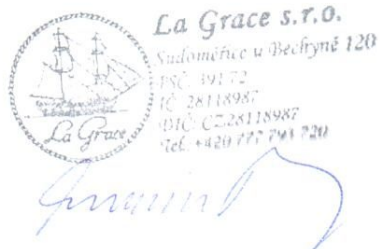 La Grace s.r.o.
Sudoměřice u Bechyně 120
PSČ: 391 72
IČ: 28118987
DIČ: CZ28118987
Tel.: +420 777 793 720
La Grace